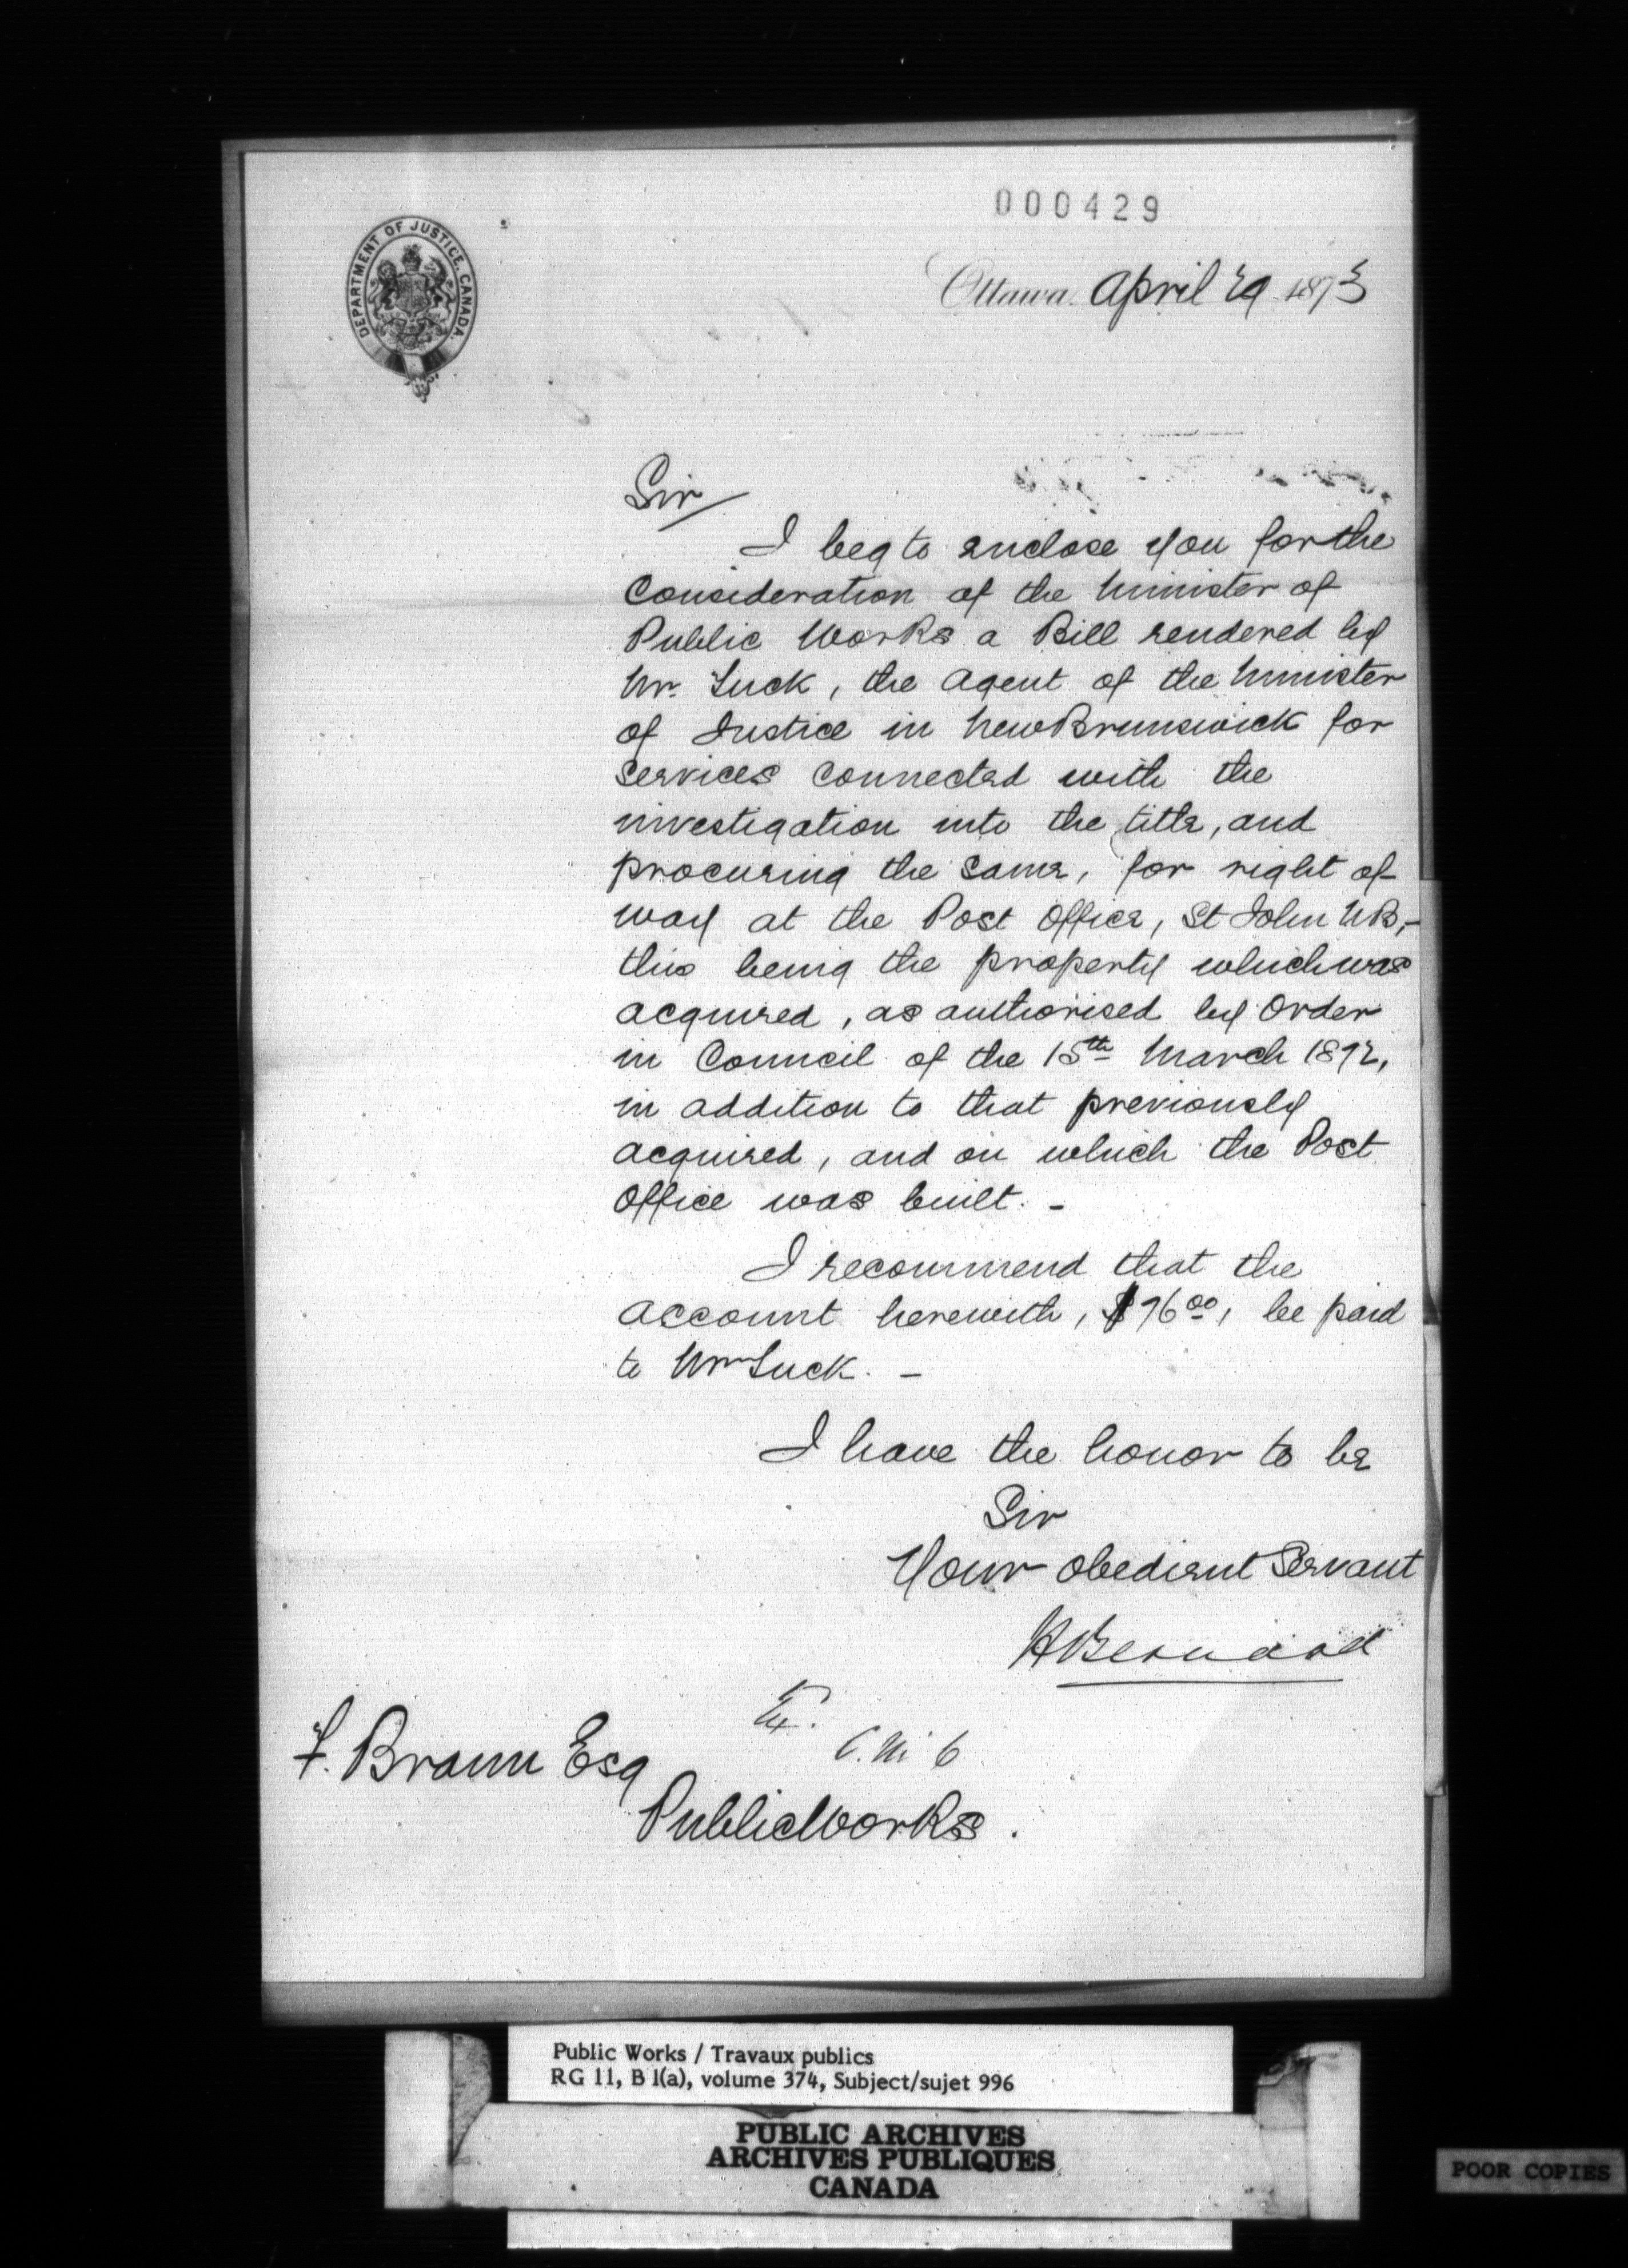 000429
DEPARTMENT OF JUSTICE, CANADA.
Ottawa. April 29 1873
Sir
I beg to enclose you for the
Consideration of the Minister of
Public Works a Bill rendered by
Mr. Tuck, the Agent of the Minister
of Justice in New Brunswick for
Services connected with the
investigation into the title, and
procuring the same, for right of
way at the Post Office, St John NB,-
this being the property which was
acquired, as authorised by Order
in Council of the 15th March 1872,
in addition to that previously
acquired, and on which the Post
Office was built. -
I recommend that the
account herewith, $76 00, be paid
to Mr Tuck. -
I have the honor to be
Sir
Your obedient Servant
H Bernard
F. Braun Esq
Public Works.
Public Works / Travaux publics
RG 11, B 1(a), volume 374, Subject/sujet 996
PUBLIC ARCHIVES
ARCHIVES PUBLIQUES
CANADA
POOR COPIES